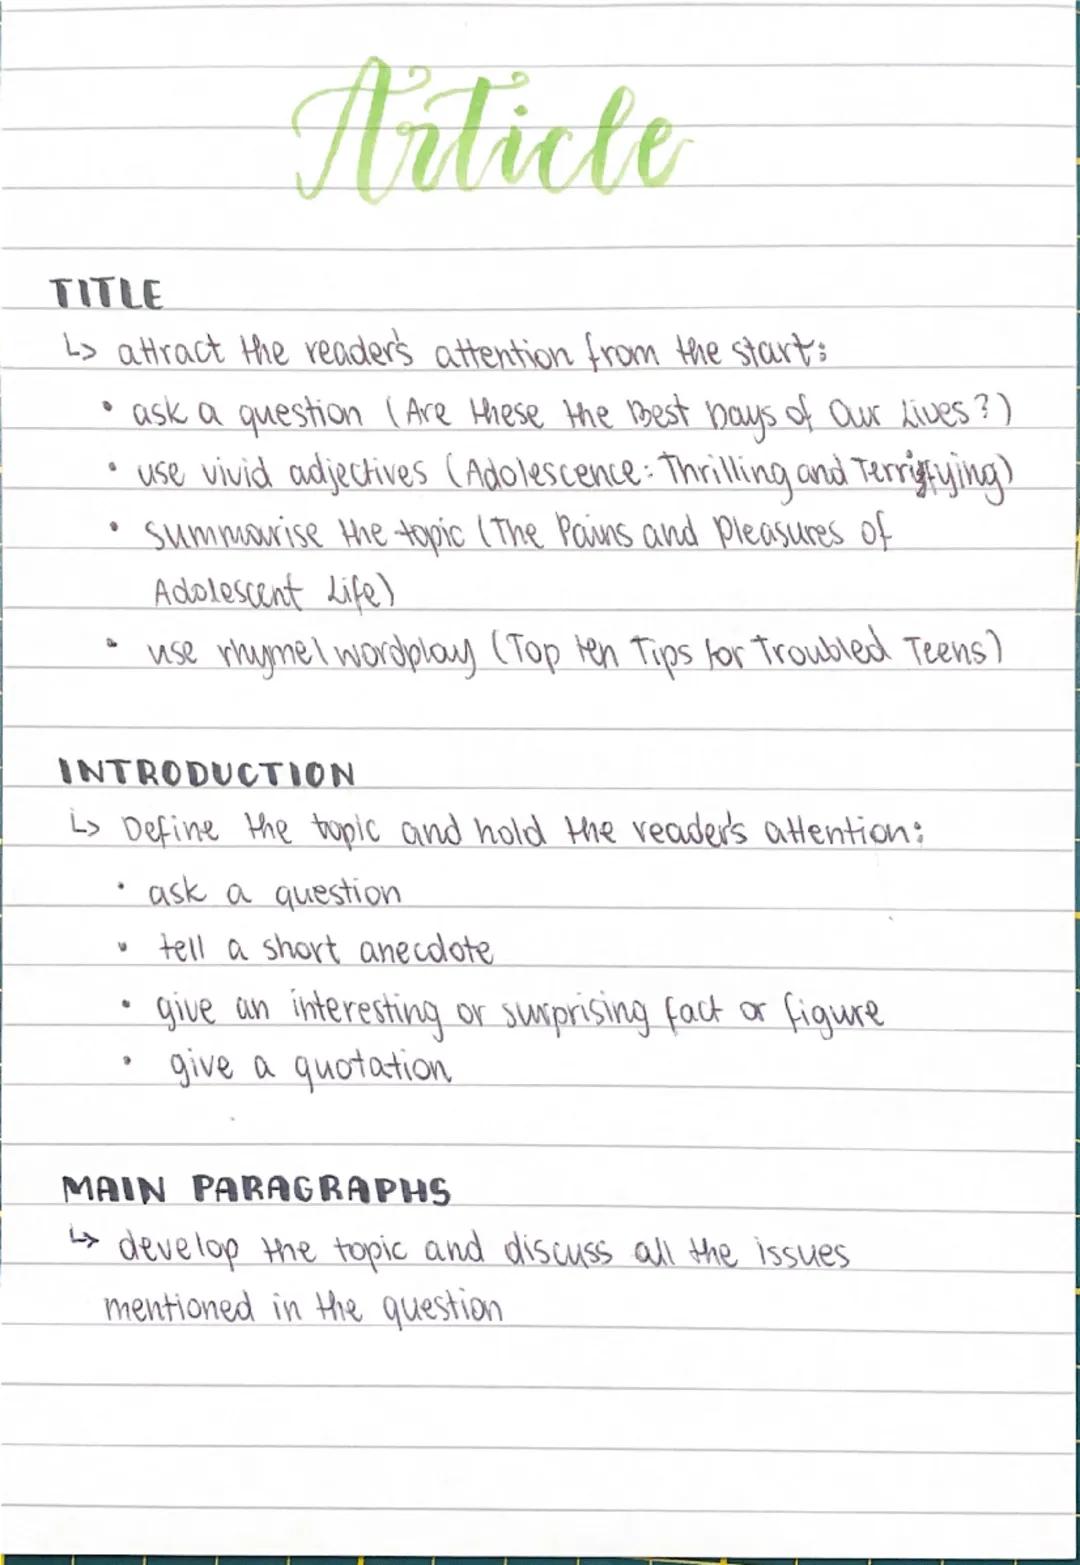 Article
TITLE
↳ attract the reader's attention from the start:
• ask a question (Are these the Best Days of Our Lives?)
• use vivid adjectives (Adolescence: Thrilling and Terrifying)
• summarise the topic (The Pains and Pleasures of
Adolescent Life)
• use rhyme/wordplay (Top ten Tips for Troubled Teens)
INTRODUCTION
↳ Define the topic and hold the reader's attention:
• ask a question
• tell a short anecdote
• give an interesting or surprising fact or figure
• give a quotation
MAIN PARAGRAPHS
↳ develop the topic and discuss all the issues
mentioned in the question